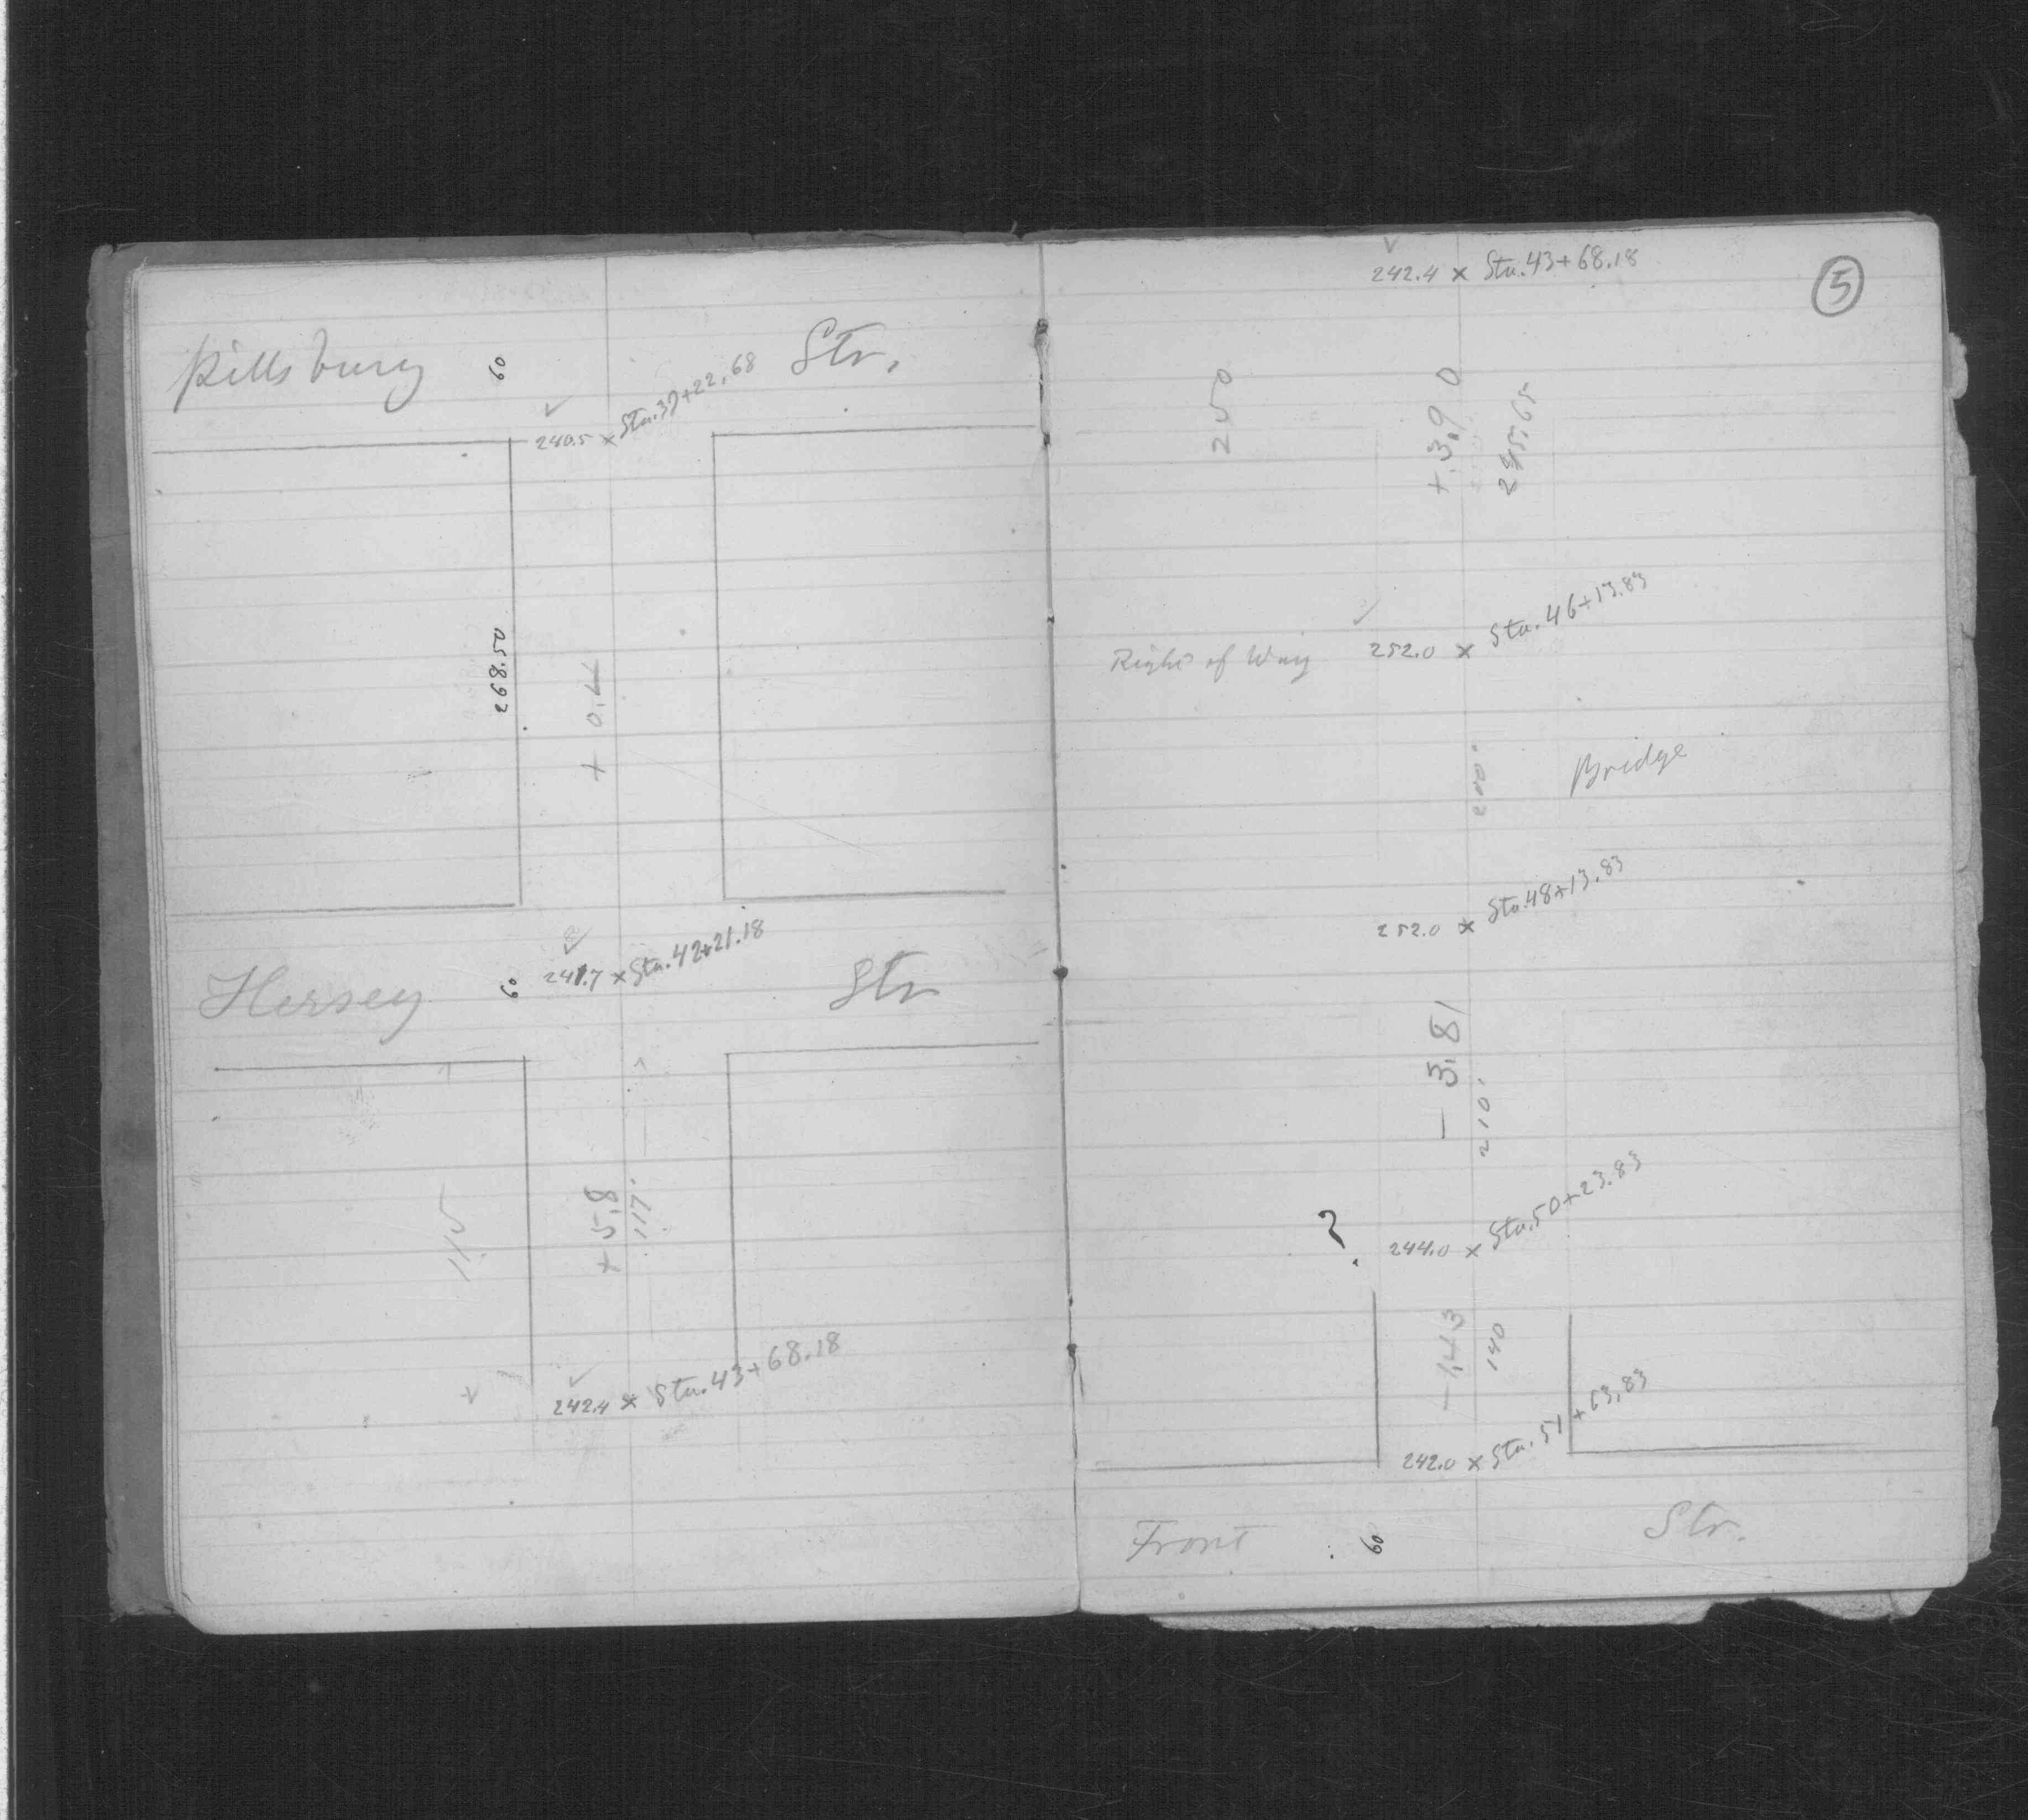 Pillsbury 60 Str.
240.5 x Sta. 39+22.68
268.50
+ 0.44
241.7 x Sta. 42+21.18
Hersey 60 Str
115
+ 5.8
117'
242.4 x Sta. 43+68.18
5
242.4 x Sta. 43+68.18
250
+ 3.90
245.65
Right of Way 252.0 x Sta. 46+13.83
200'
Bridge
252.0 x Sta. 48+13.83
- 3.81
210'
? 244.0 x Sta. 50+23.83
- 1.43
140
242.0 x Sta. 51+63.83
Front 60 Str.